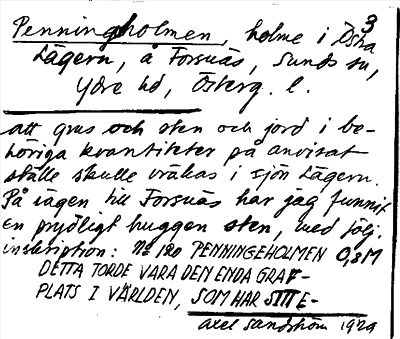 3
Penningholmen, holme i Östra
Lägern, å Forsnäs, Sunds sn,
Ydre hd, Österg. l.
att grus och sten och jord i be-
höriga kvantiteter på anvisat
ställe skulle vräkas i sjön Lägern.
På vägen till Forsnäs har jag funnit
en prydligt huggen sten, med följ.
inskription: No 120 PENNINGEHOLMEN 0,3 M
DETTA TORDE VARA DEN ENDA GRAF-
PLATS I VÄRLDEN, SOM HAR SITT E-
Axel Sandström 1929